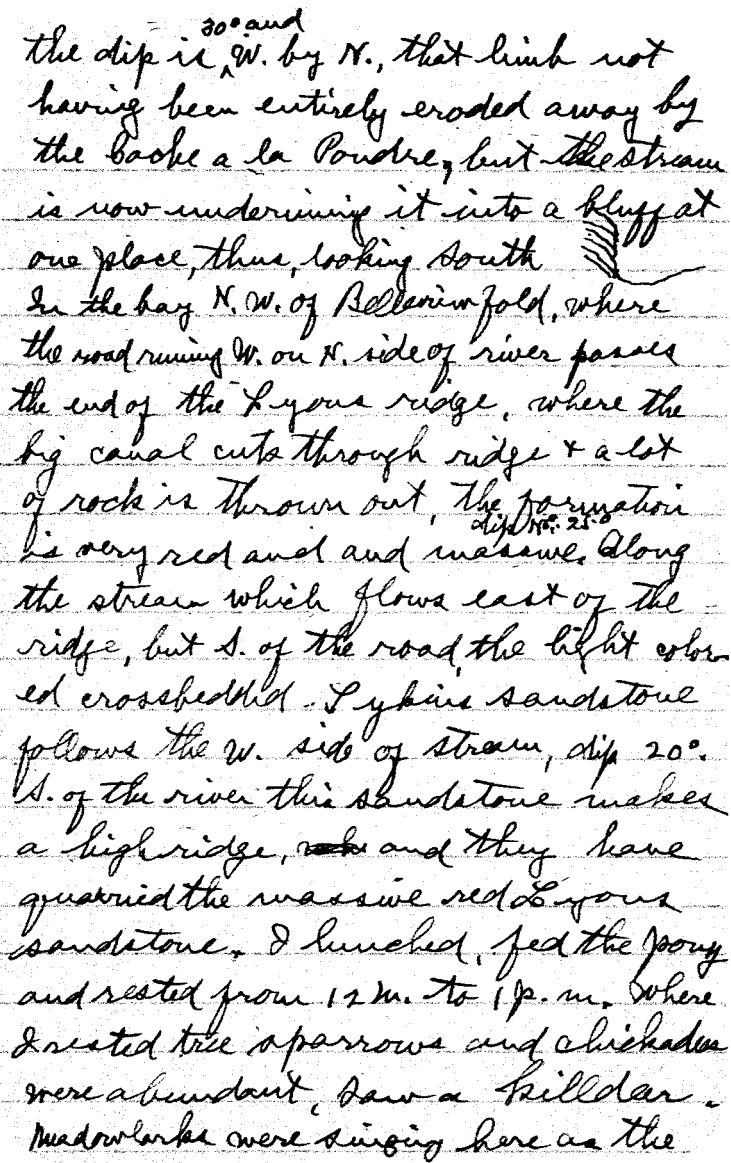 30° and
the dip is ^ W. by N., that limb not
having been entirely eroded away by
the Cache a la Poudre, but the stream
is now undermining it into a bluff at
one place, thus, looking South
In the bay N. W. of Bellevue fold, where
the road runing W. on N. side of river passes
the end of the Lyons ridge, where the
big canal cuts through ridge & a lot
of rock is thrown out, the formation
dip No. 25°
is very red and and massive. Along
the stream which flows east of the
ridge, but S. of the road, the light color-
ed crossbedded Lykins sandstone
follows the W. side of stream, dip 20°.
S. of the river this sandstone makes
a high ridge, and they have
quarried the massive red Lyons
sandstone. I lunched, fed the pony
and rested from 12 m. to 1 p. m. Where
I rested tree sparrows and chickadees
were abundant, saw a killdar.
Meadowlarks were singing here as the